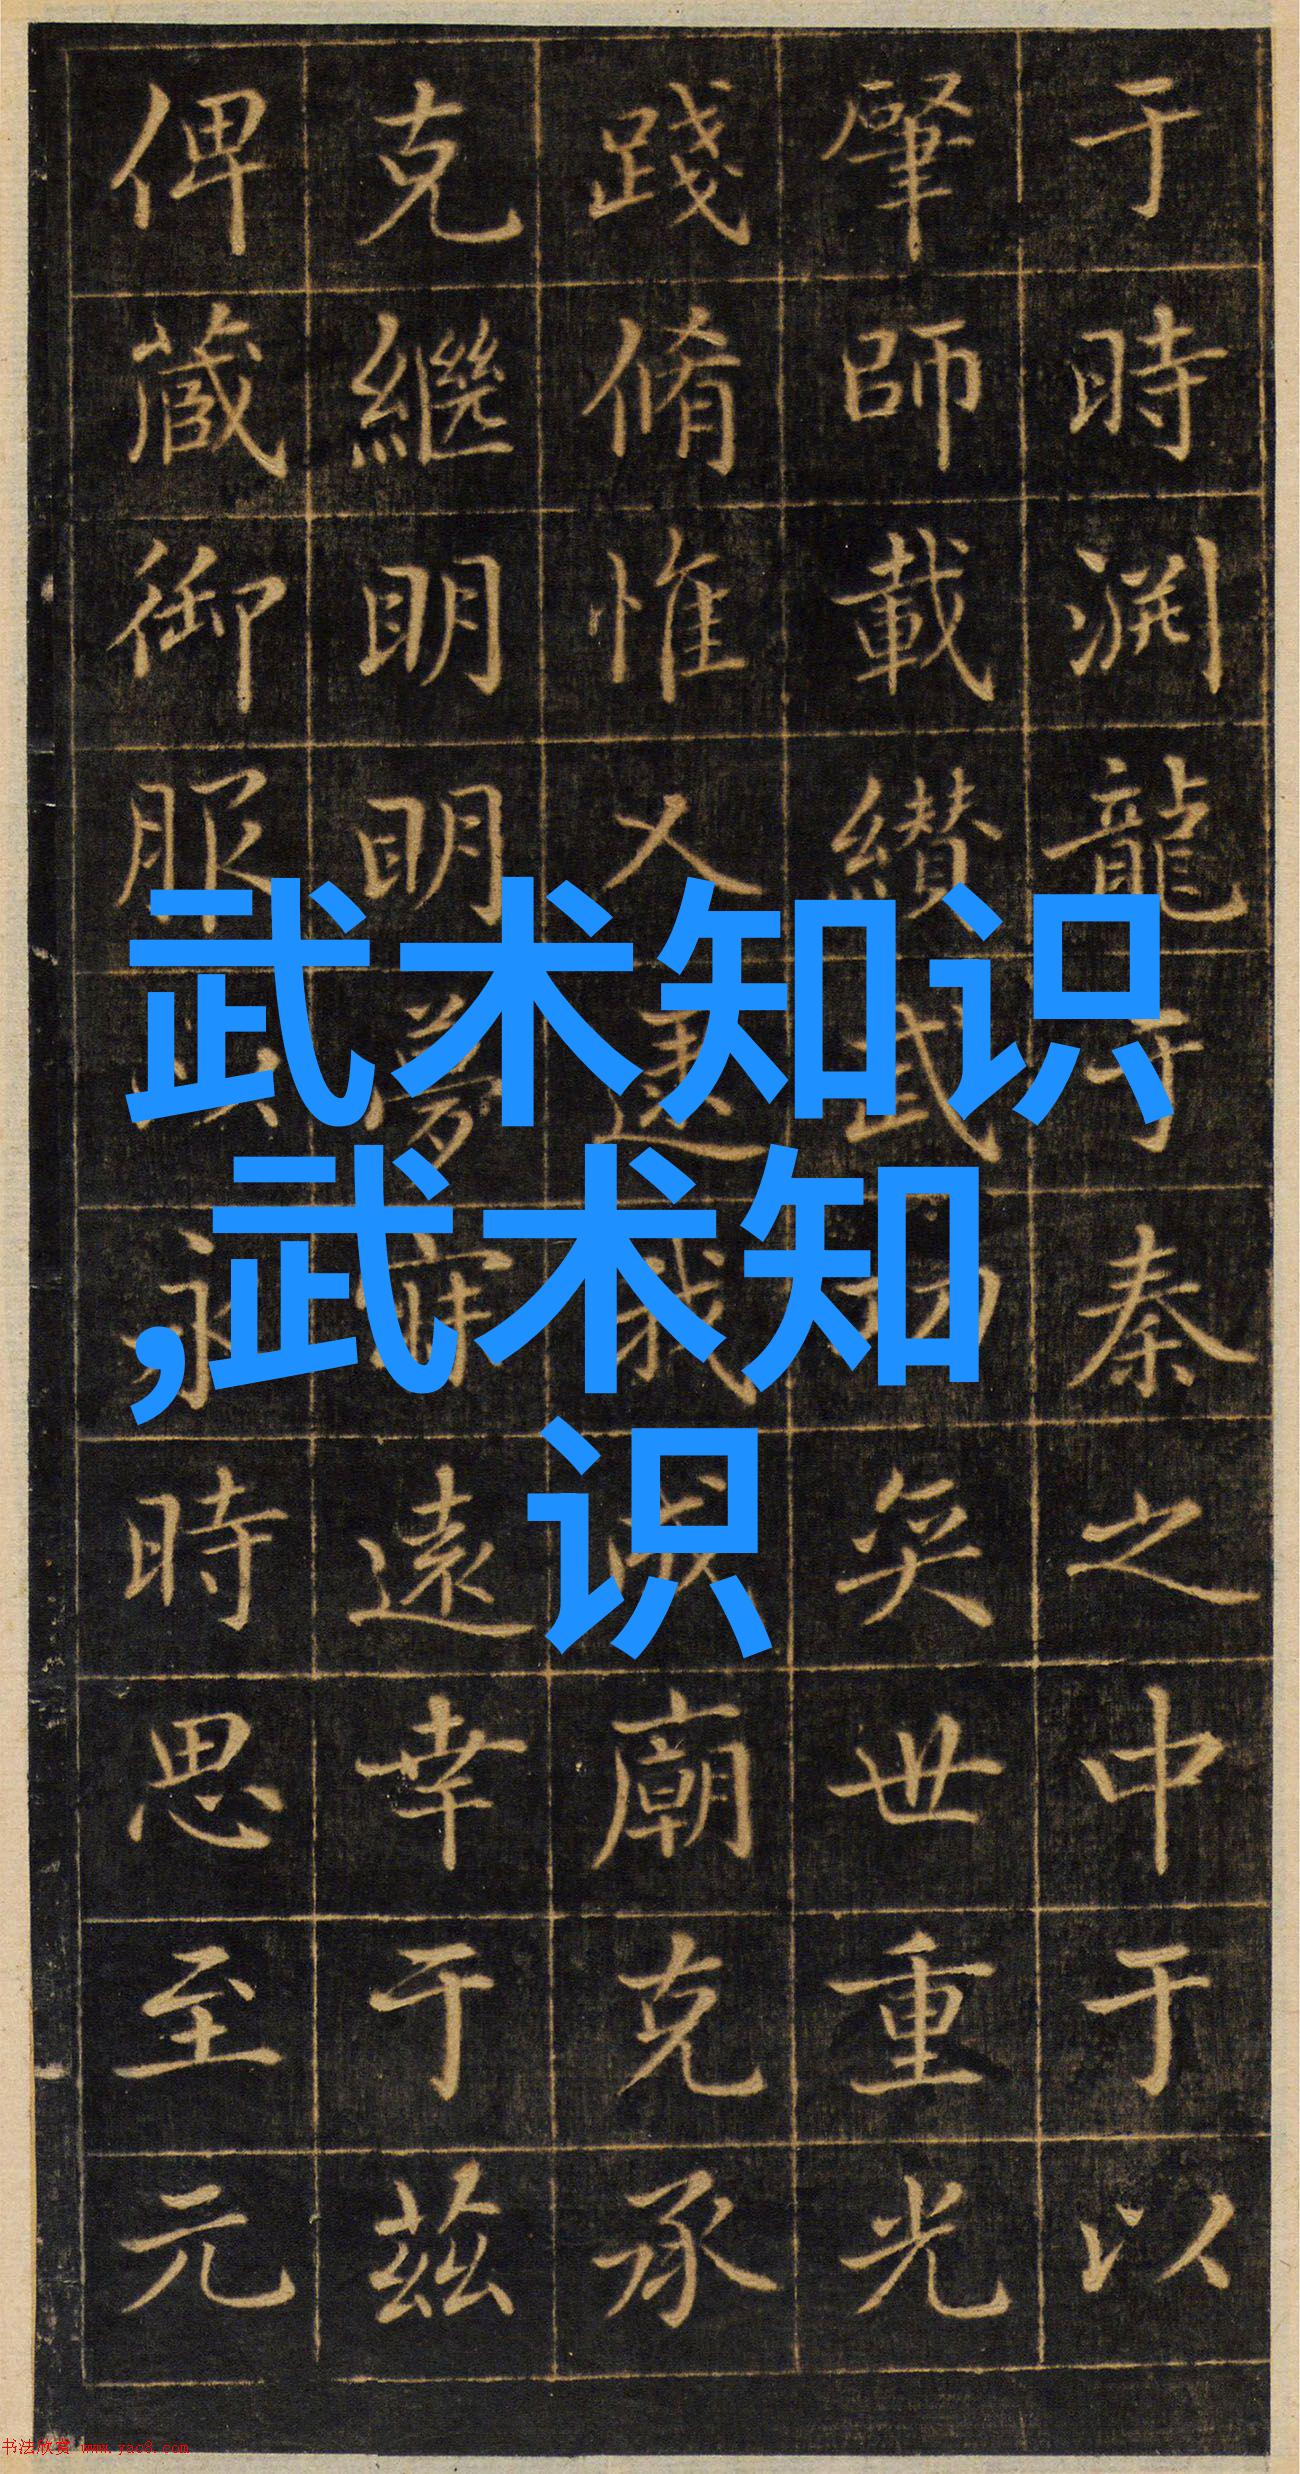 于時渊龍于秦之中于以
肇師載纘武功奕世重光
踐脩惟人逮我成廟克承
克繼明明夢寐遠幸于茲
俾蕆御服永時思至元
武术知识
,武术知
识
书法欣赏 www.yac8.com